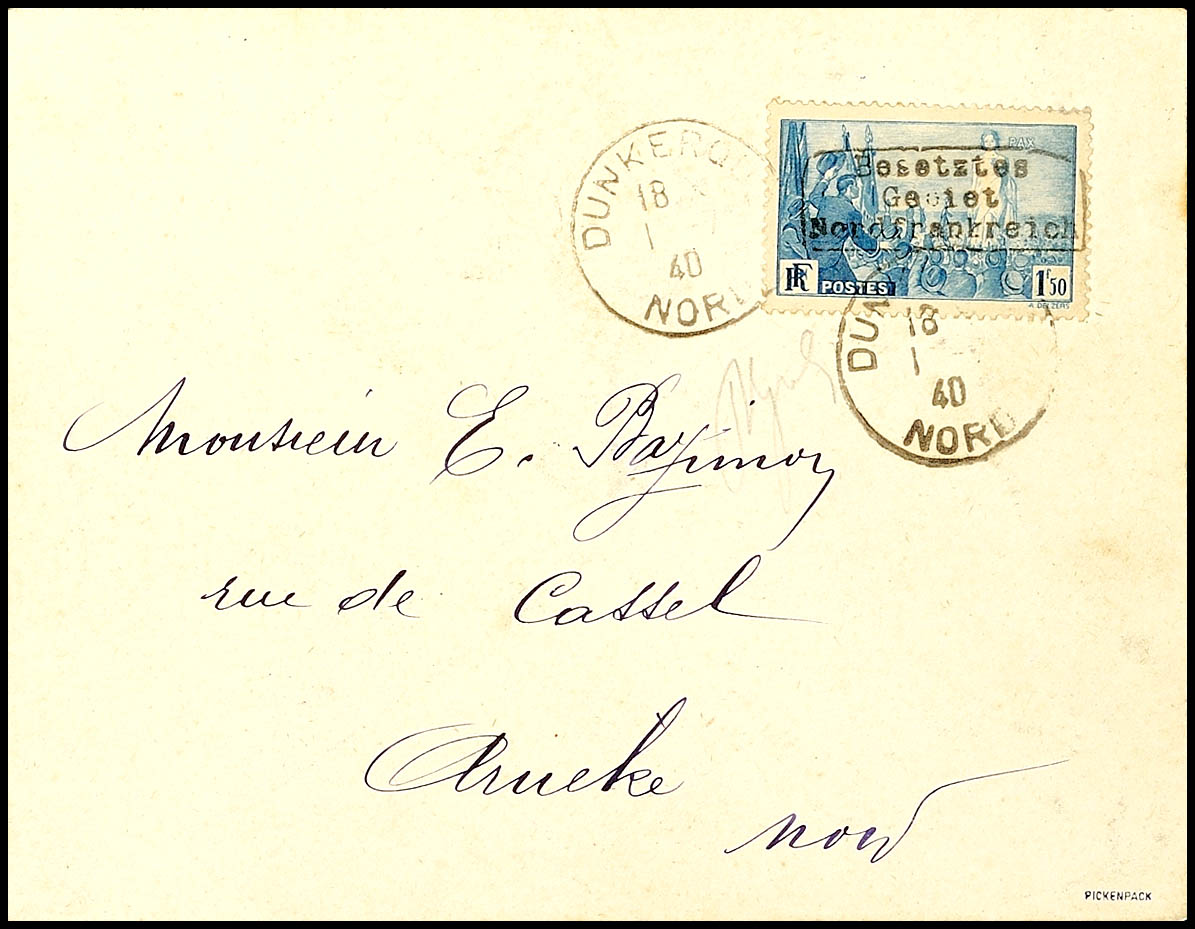 DUNKERQU
18
1 7
40
NORD
PAX
Besetztes
Gebiet
Nordfrankreich
RF
POSTES
1F50
A. DELZERS
DUN
18
1
40
NORD
Monsieur E.
rue de Cassel
Arneke
Nord
PICKENPACK